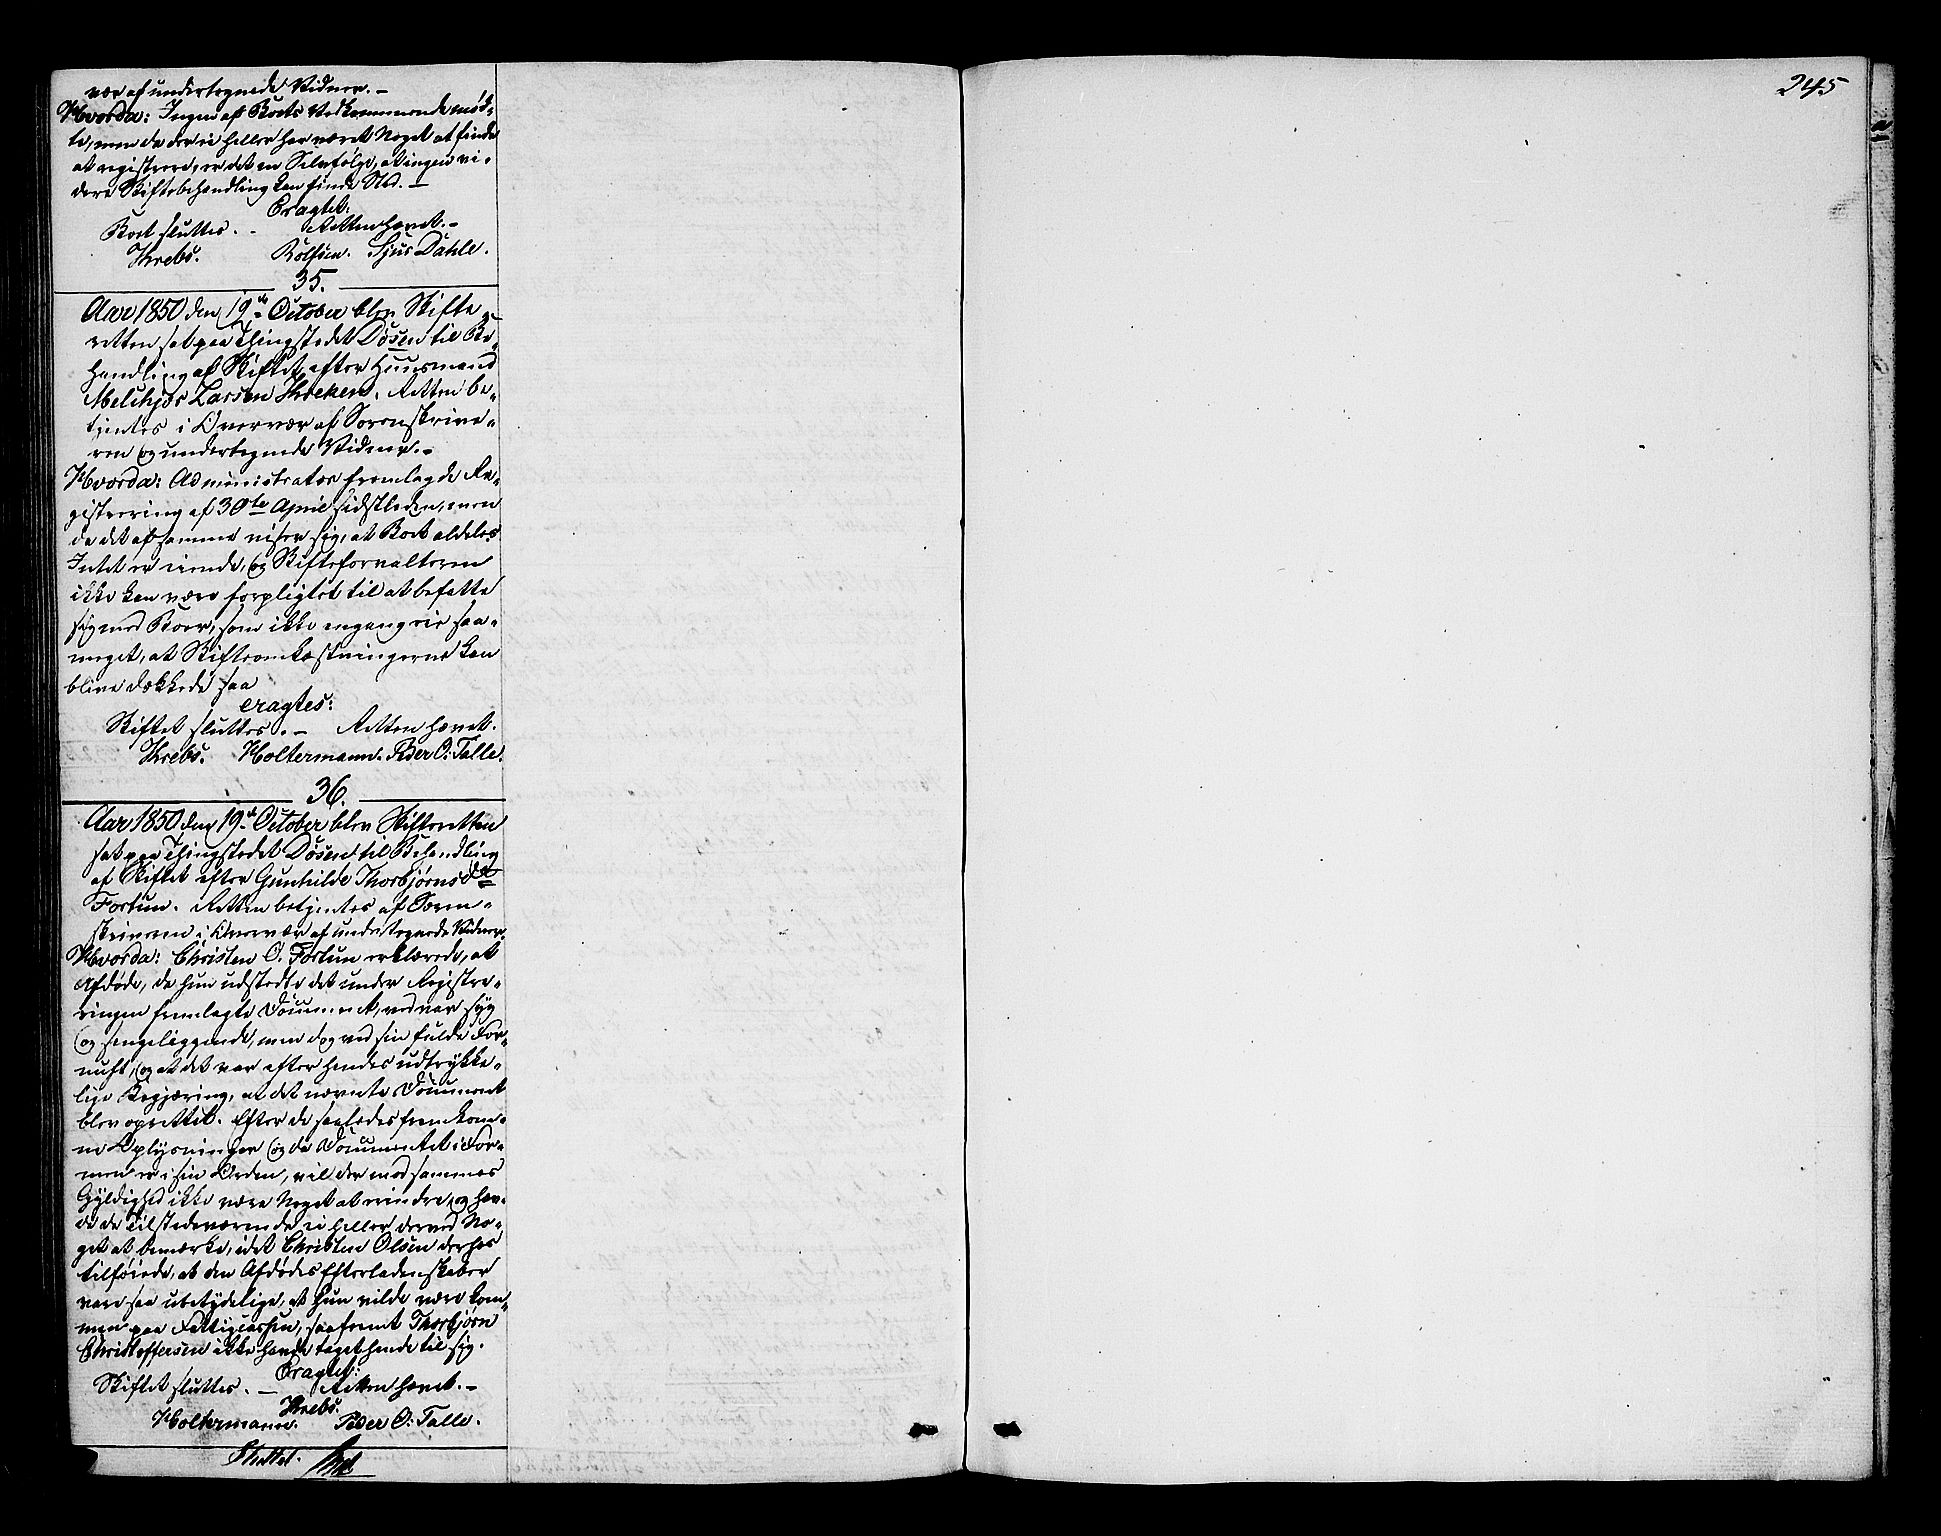 vær af undertegnede Vidner. –
Hvorda: Ingen af Boets Vedkommende mød-
te, men da der ei heller har været Noget at finde
at registrere, er det en Selvfølge, at ingen vi-
dere Skiftebehandling kan finde Sted. –
Eragtet:
Boet sluttes. – Retten hævet. –
Krebs. Rolfsen. Sjur Dahle.
35.
Aar 1850 den 19de October blev Skifte-
retten sat paa Thingstedet Døsen til Be-
handling af Skiftet efter Huusmand
Melchjor Larsen Kroken. Retten be-
tjentes i Overvær af Sorenskrive-
ren og undertegnede Vidner. –
Hvorda: Administrator fremlagde Re-
gistrering af 30te April sidstleden, men
da det af samme viser sig, at Boet aldeles
Intet er eiende, og Skifteforvalteren
ikke kan være forpligtet til at befatte
sig med Boer, som ikke engang eie saa-
meget, at Skifteomkostningerne kan
blive dækkede saa
eragtes:
Skiftet sluttes. – Retten hævet.
Krebs. Holtermann. Peder O. Talle.
36.
Aar 1850 den 19de October blev Skifteretten
sat paa Thingstedet Døsen til Behandling
af Skiftet efter Gunhilde Thorbjørnsdtr
Fortun. Retten betjentes af Soren-
skriveren i Overvær af undertegnede Vidner.
Hvorda: Christen O. Fortun erklærede, at
Afdøde, da hun udstedte det under Registre-
ringen fremlagte Document, vel var syg
og sengeliggende, men dog ved sin fulde For-
nuft, og at det var efter hendes udtrykke-
lige Begjæring, at det nævnte Document
blev oprettet. Efter de saaledes fremkom-
ne Oplysninger og da Documentet i For-
men er i sin Orden, vil der mod sammes
Gyldighed ikke være Noget at erindre, og hav-
de de Tilstedeværende ei heller derved No-
get at bemærke, idet Christen Olsen derhos
tilføiede, at den Afdødes Efterladenskaber
vare saa ubetydelige, at hun vilde være kom-
men paa Fattigcassen, saafremt Thorbjørn
Christoffersen ikke havde taget hende til sig.
Eragtet:
Skiftet sluttes. – Retten hævet. –
Krebs.
Holtermann. Peder O. Talle.
Sluttet.
245